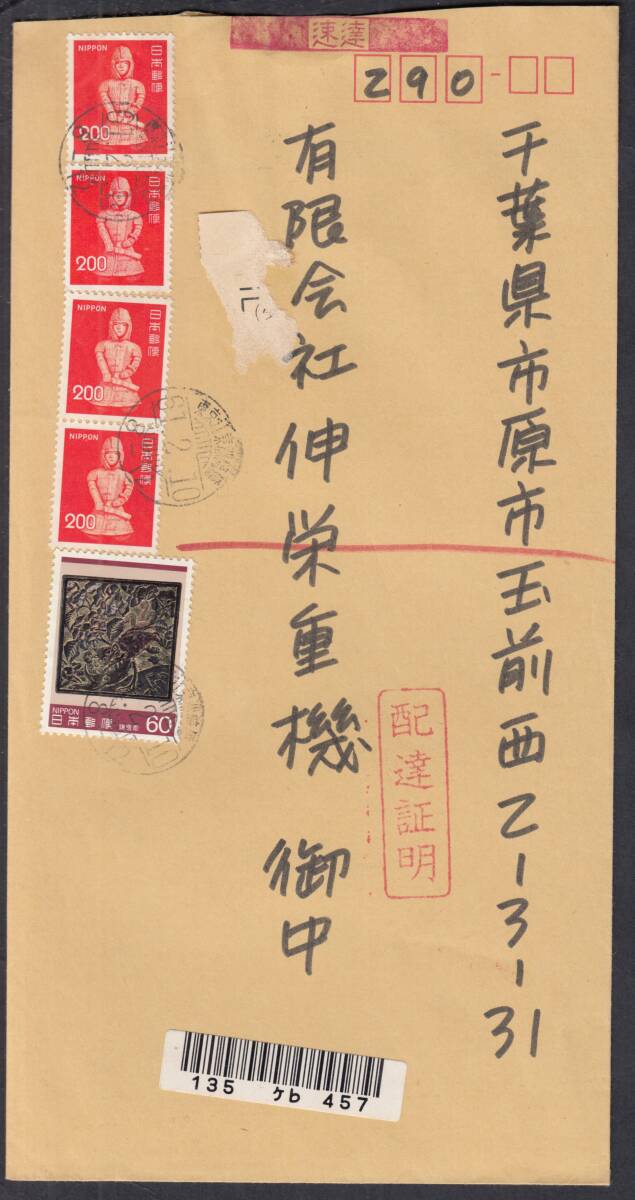 速達
290
千葉県市原市玉前西2-3-31
有限会社伸栄重機 御中
配達証明
NIPPON
日本郵便
200
NIPPON
日本郵便
200
NIPPON
日本郵便
200
NIPPON
日本郵便
200
NIPPON
日本郵便
60
61.2.10
135 ケb 457